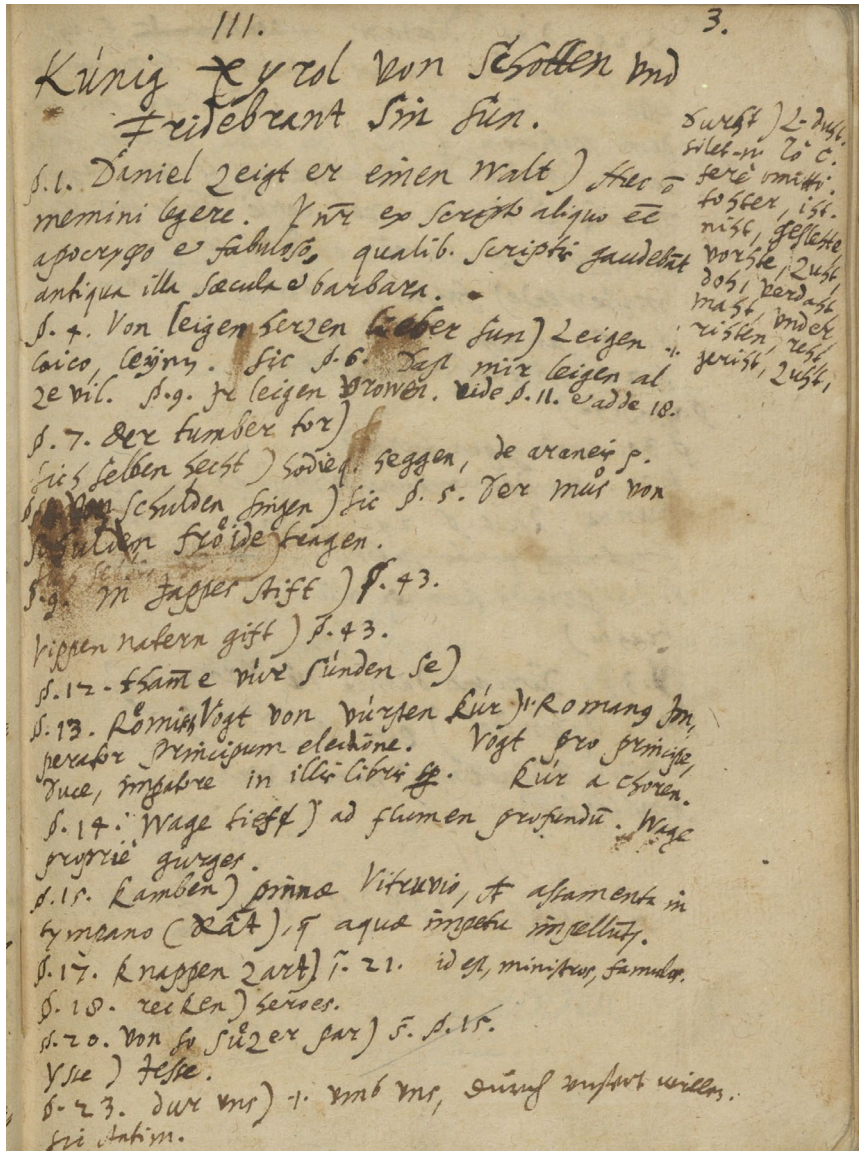 III. 3.
Kúnig Tyrol von Schotten vnd
Fridebrant Sin sun.
§.1. Daniel zeigt er einen walt) Hec
memini legere. ex scripto aliquo
apocrypho fabuloso, qualib. scriptis gaudebāt
antiqua illa sæcula barbara.
§. 4. Von leigen herzen lieber sun) Leigen
laico, leÿnn. sic §.6. Daß mir leigen al
ze vil. §.9. leigen vrowen. vide §.11. adde 18.
§. 7. der tumber tor)
sich selben hecht) hodieq heggen, de araneis
Von schulden singen) sic §. 5. Der můs von
schulden froͤide tragen.
§.9. in Jappes stift) §.43.
Vippen natern gift) §.43.
§.12. thame vúr súnden se)
§.13. Roͤmisch Vogt von vúrsten kúr) Romang Im,
perator principum electiōne. Vogt pro principe,
Duce, impatore in illis libris kúr a choren.
§.14. Wage tieff) ad flumen profundū. Wage
propriè gurges.
§.15. kamben) pinnæ Vitruvio, assamenta in
tympano (rāt), aquæ impetu impellūt.
§.17. Knappen zart) 21. id est, ministros, famulos.
§.18. recken) heroes.
§.20. von so suͦzer par) s. §.15.
Ysse) Jesse.
§.23. dur vns) vmb vns, durch vnsert willen.
sic statim.
Durst)
silet
ferè omitti.
tohter, iht.
niht, geslehte
vorhte, zuht,
doh, verdaht
maht, vnder
rihten, reht,
geriht, zuht,